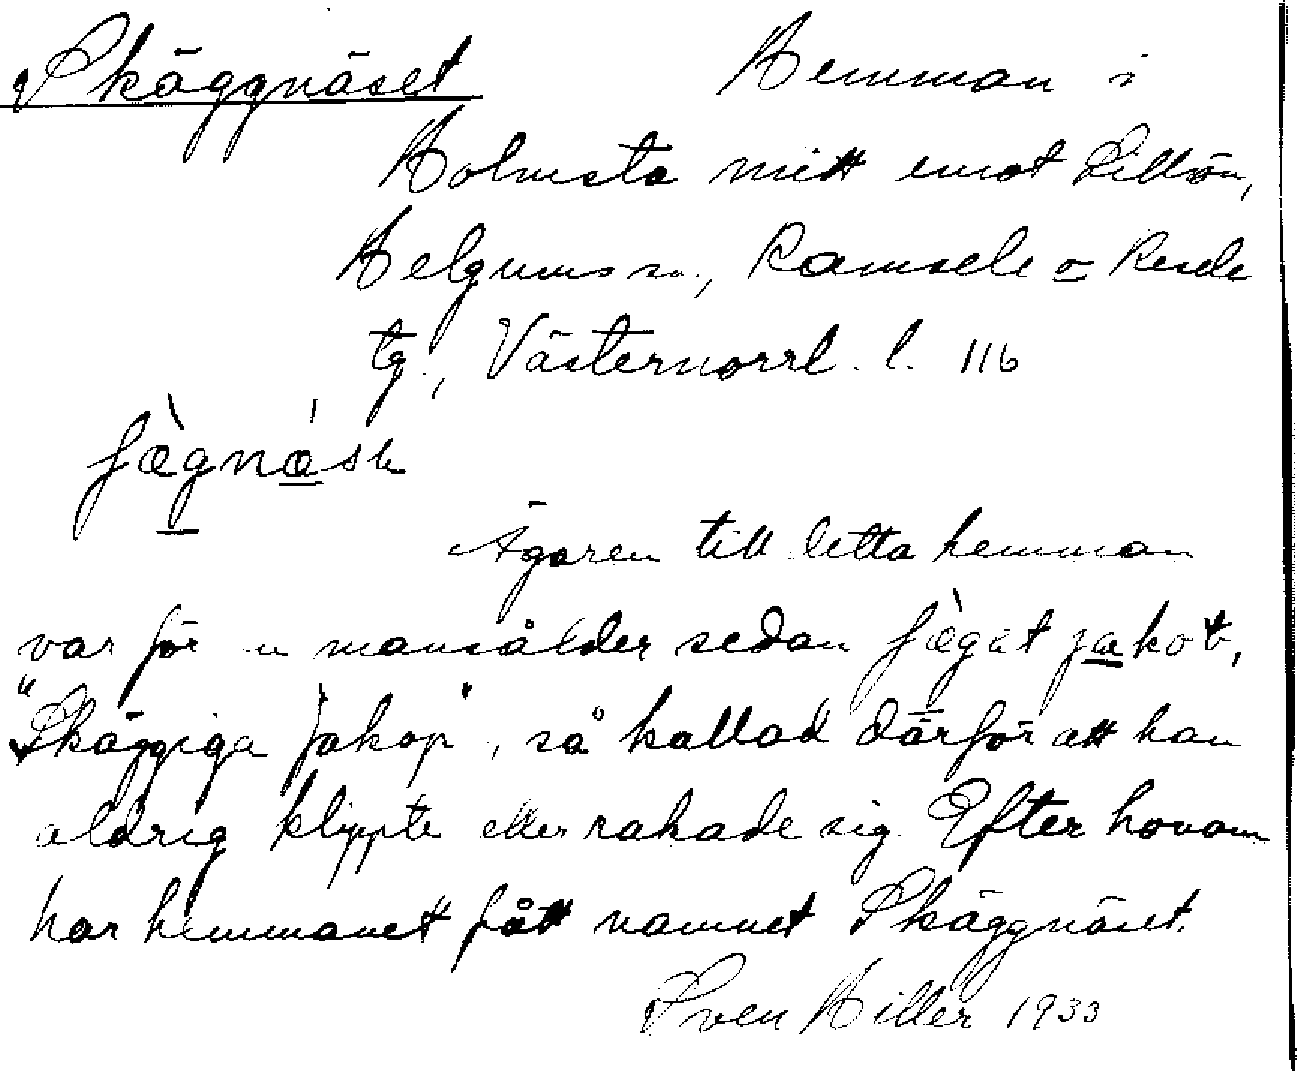 Skäggnäset Hemman i
Holmsta mitt emot Lillön,
Helgums sn., Ramsele o Resele
tg., Västernorrl. l. 116
fægnæsɩ
Ägaren till detta hemman
var för en mansålder sedan fægat jakob,
"Skäggiga Jakop", så kallad därför att han
aldrig klippte eller rakade sig. Efter honom
har hemmanet fått namnet Skäggnäset.
Sven Hiller 1933